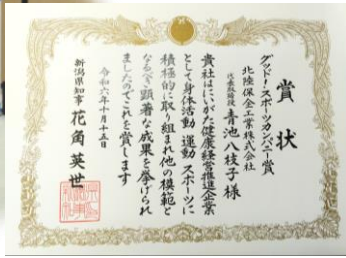 賞状
グッド・スポーツカンパニー賞
北陸保全工業株式会社
代表取締役 青池八枝子様
貴社はにいがた健康経営推進企業
として身体活動 運動 スポーツに
積極的に取り組まれ他の模範と
なるべき顕著な成果を挙げられ
ましたのでこれを賞します
令和六年十月十五日
新潟県知事 花角英世